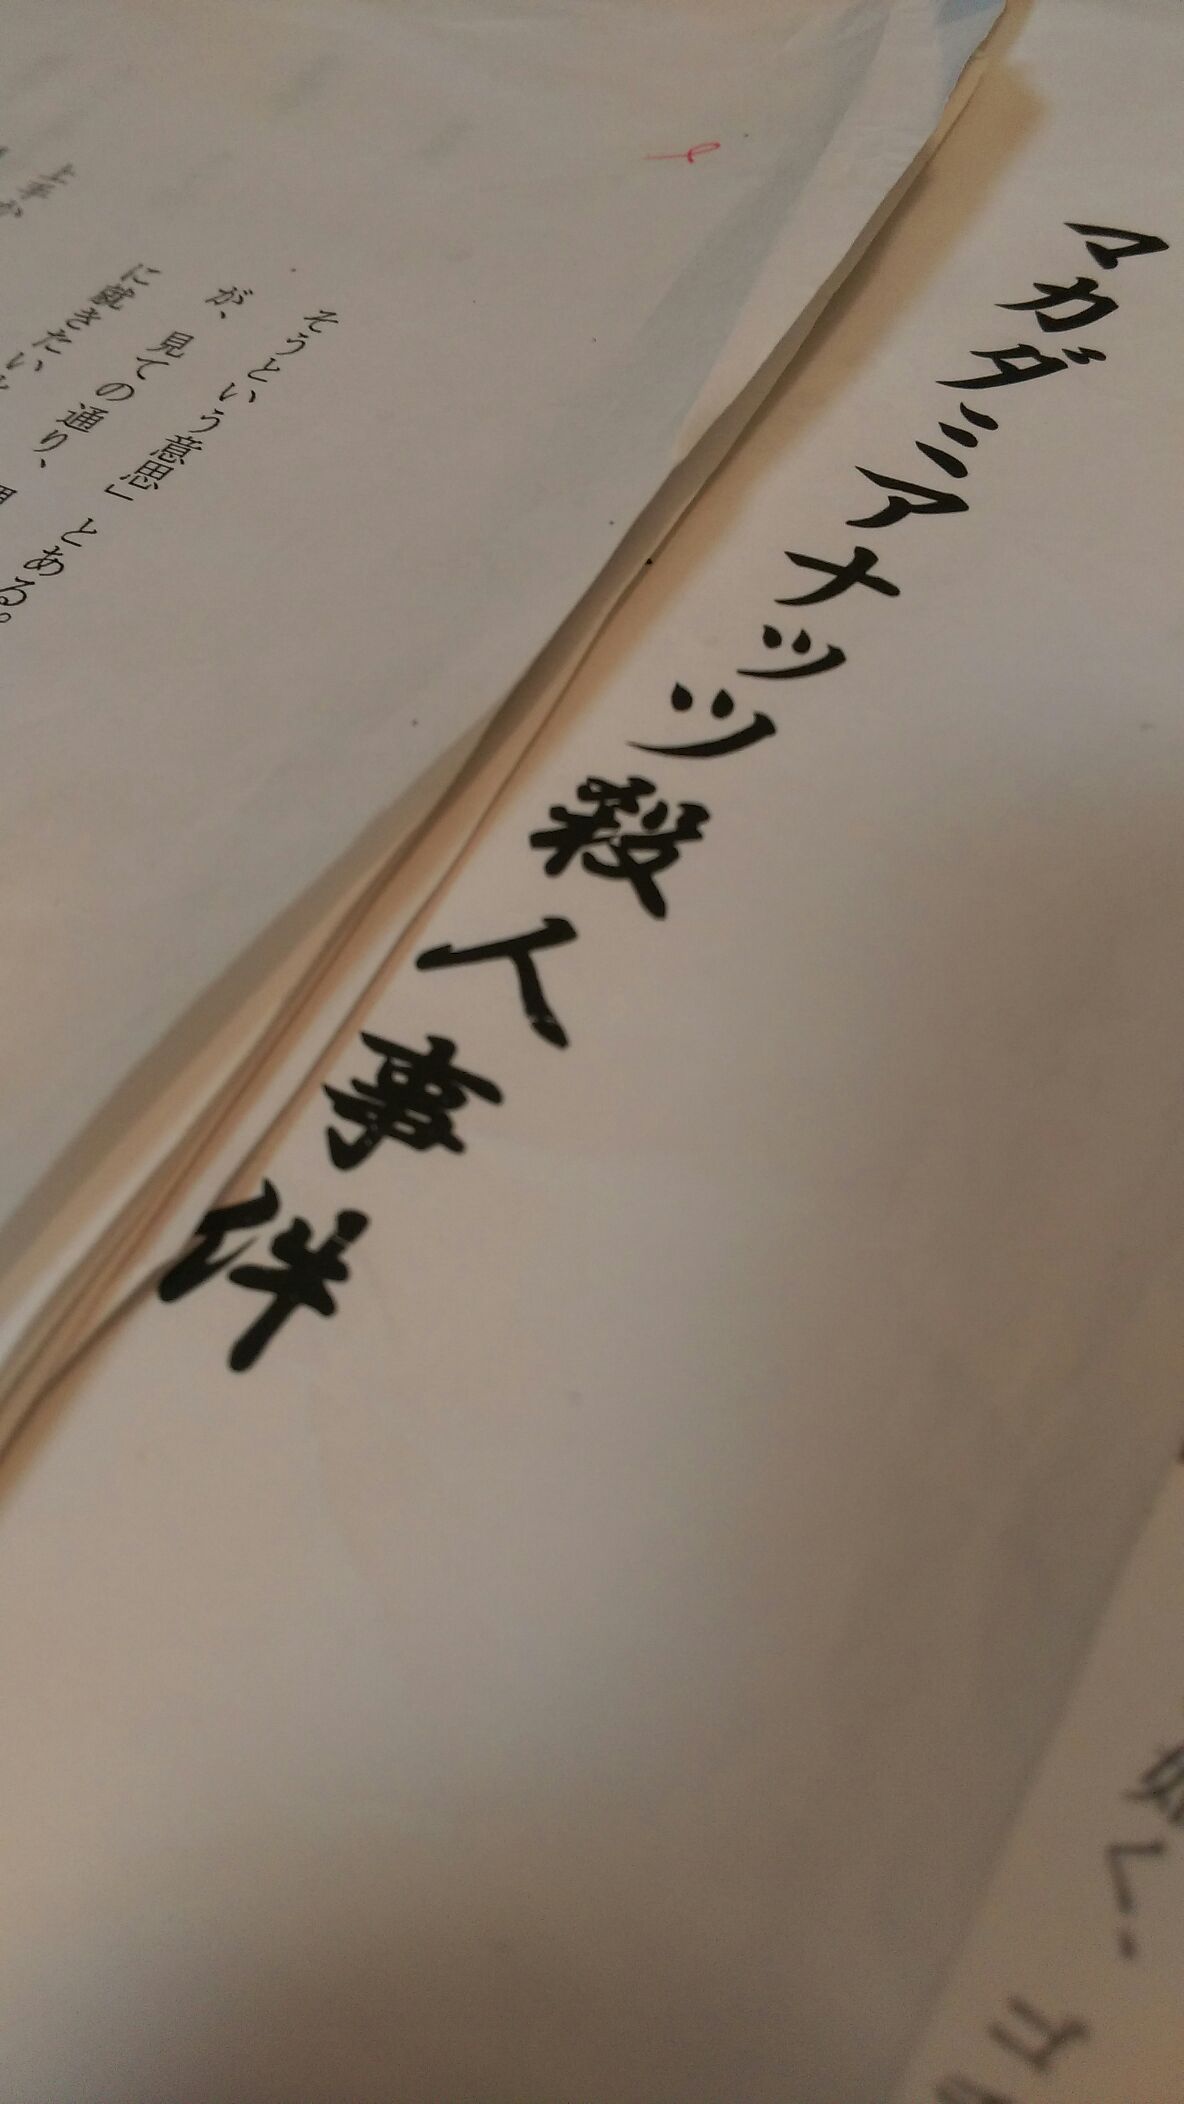 マカダミアナッツ殺人事件
そうという意思」とある。
が、見ての通り、
に就きたいと